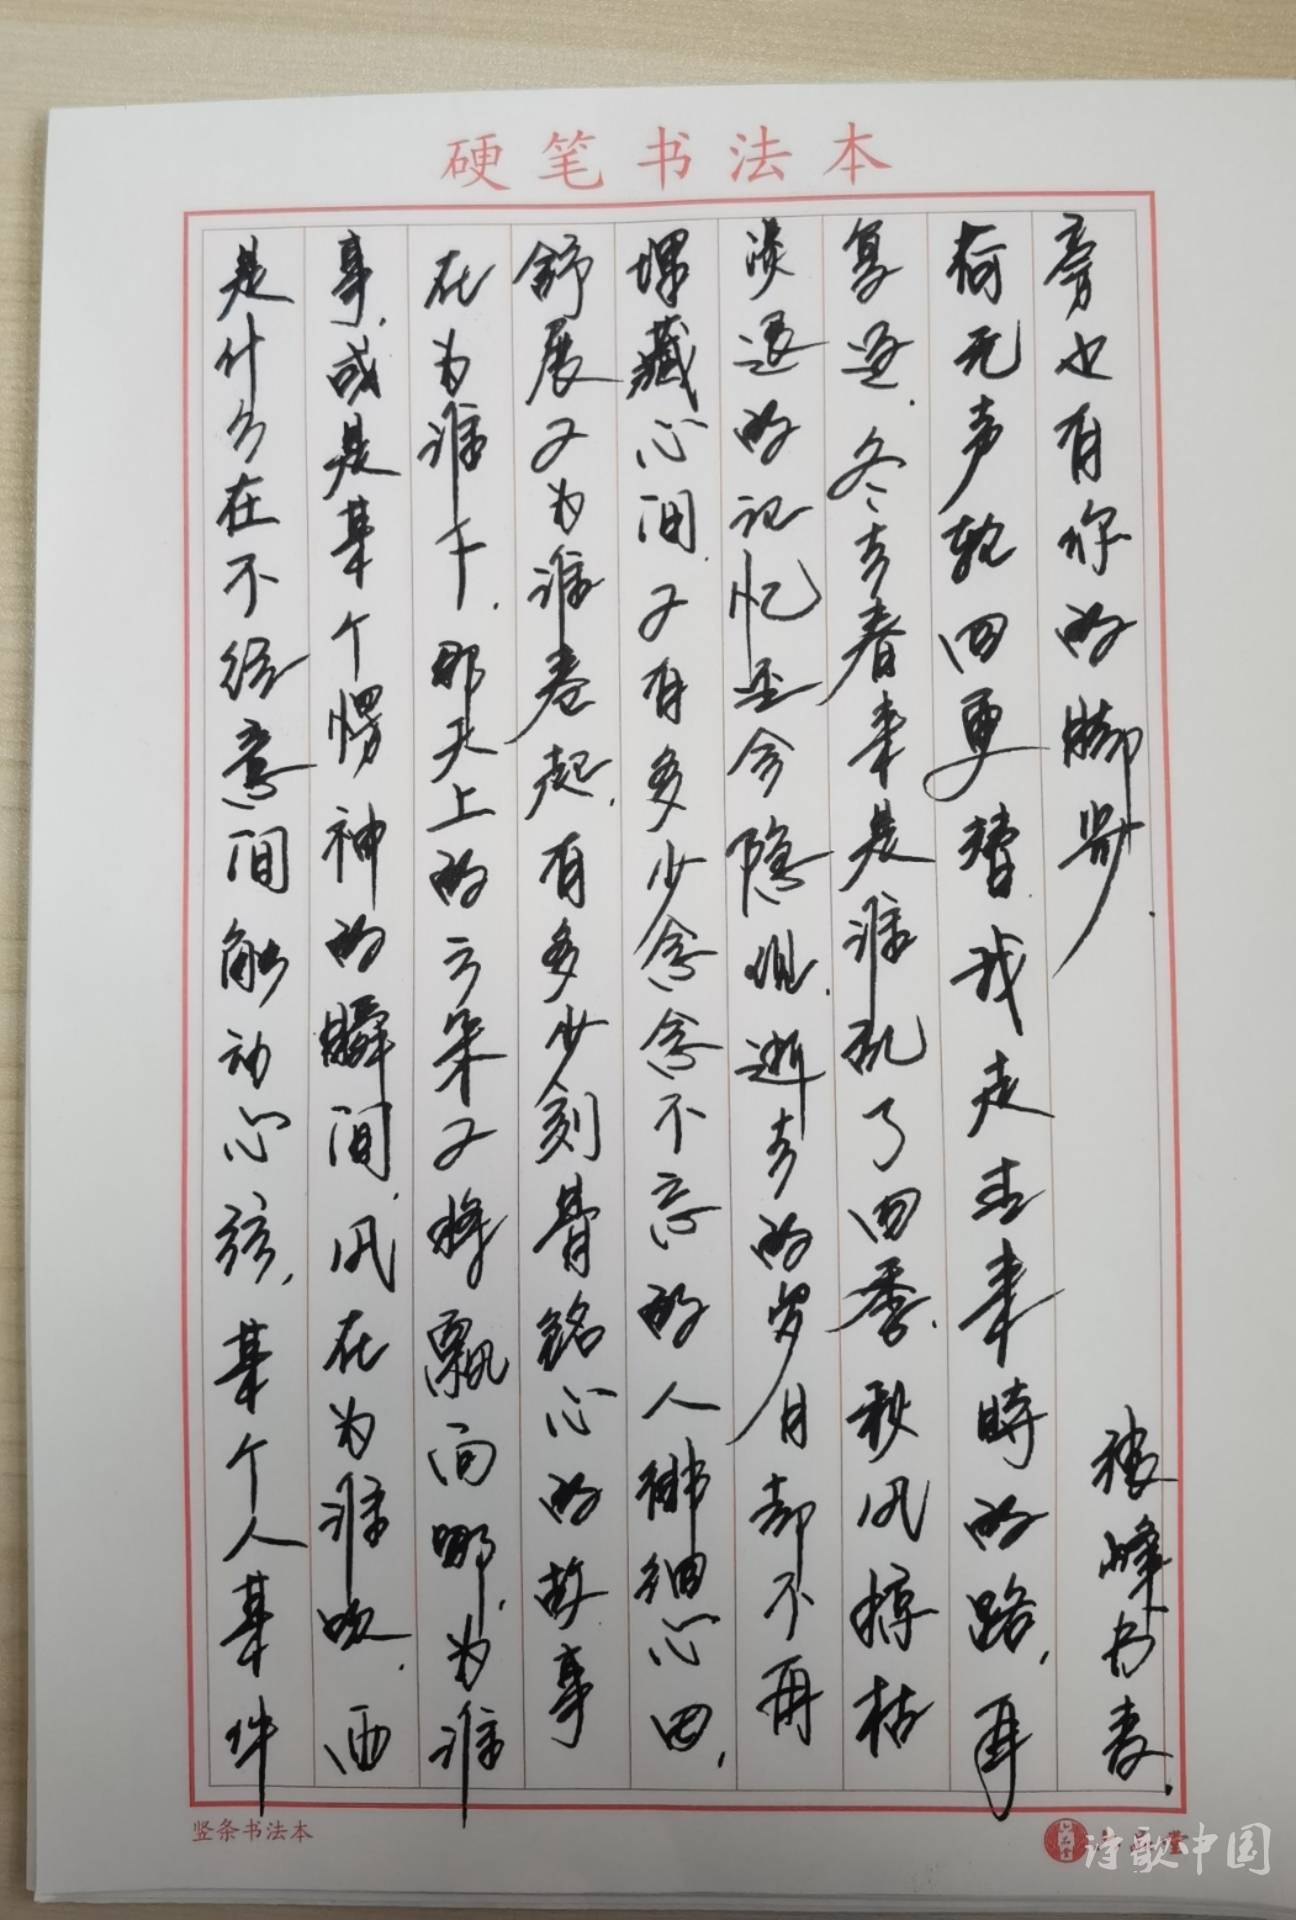 硬笔书法本
是什么在不经意间触动心弦,某个人某件
事,或是某个愣神的瞬间,风在为谁吹,雨
在为谁下,那天上的云朵又将飘向哪,为谁
舒展又为谁卷起,有多少刻骨铭心的故事
埋藏心间,又有多少念念不忘的人心田,
淡退的记忆至今隐现,逝去的岁月却不再
复返,冬去春来是谁乱了四季,秋风掠枯
荷无声轮回更替,我走来時的路,耳
旁也有你的脚步.
峰书
竖条书法本
诗歌中国